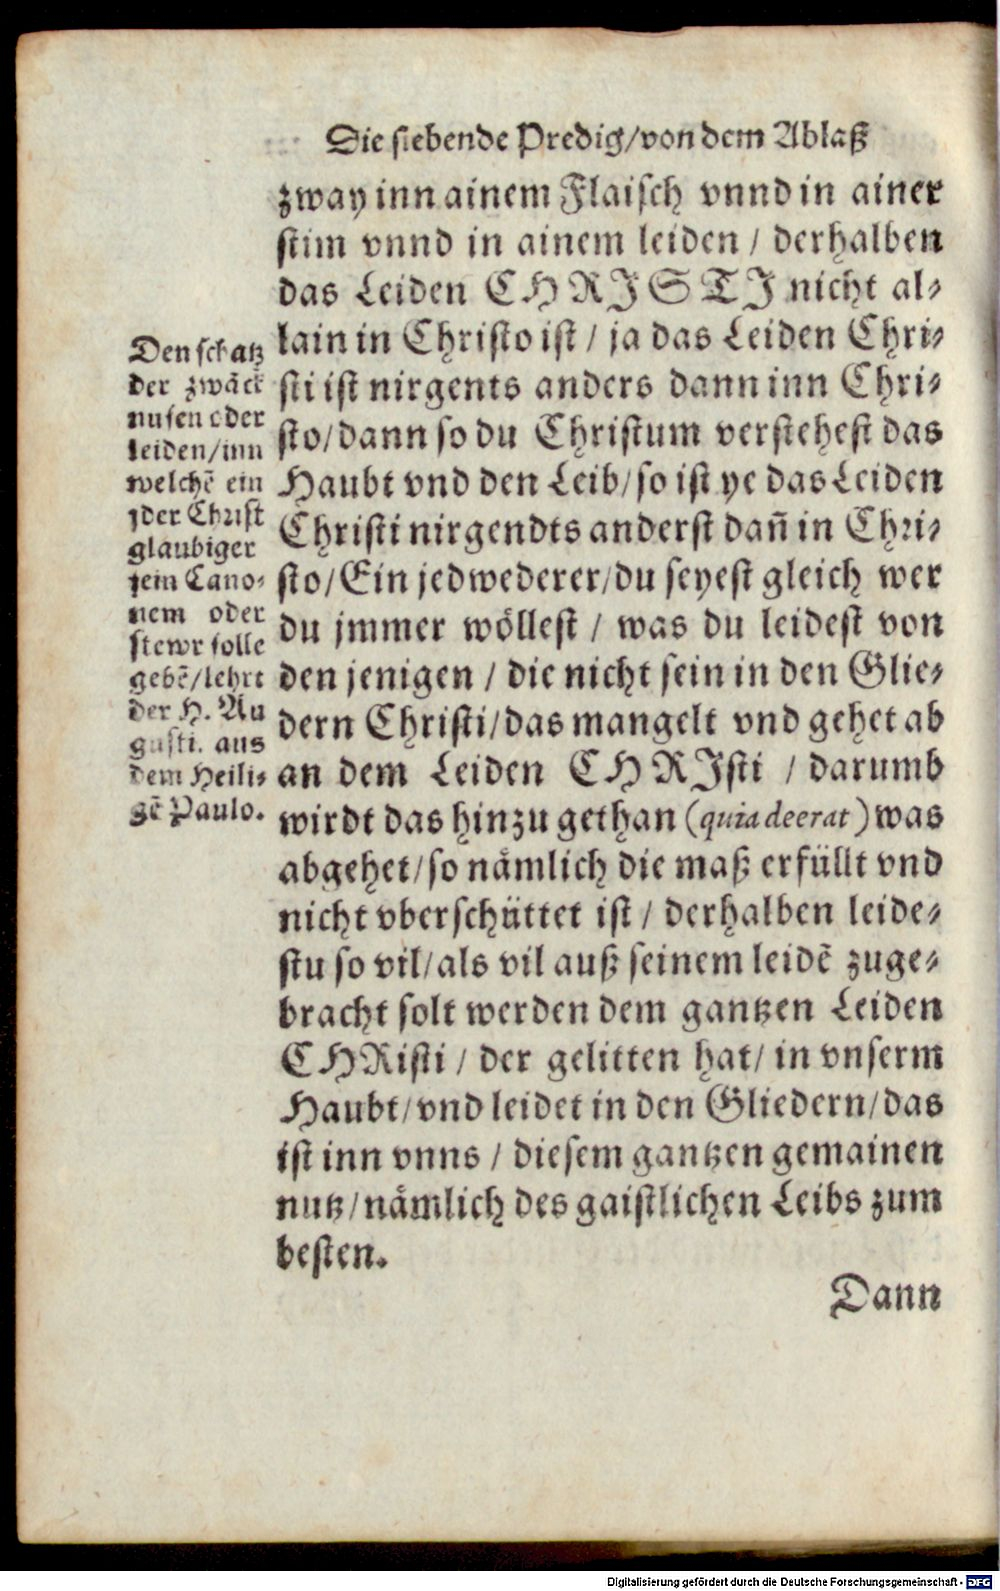 Die siebende Predig/von dem Ablaß
zway inn ainem Flaisch vnnd in ainer
stim vnnd in ainem leiden / derhalben
das Leiden CHRISTI nicht al-
lain in Christo ist / ja das Leiden Chri-
sti ist nirgents anders dann inn Chri-
sto/dann so du Christum verstehest das
Haubt vnd den Leib/so ist ye das Leiden
Christi nirgendts anderst dañ in Chri-
sto/Ein jedwederer/du seyest gleich wer
du jmmer wöllest / was du leidest von
den jenigen / die nicht sein in den Glie-
dern Christi/das mangelt vnd gehet ab
an dem Leiden CHRIsti / darumb
wirdt das hinzu gethan (quia deerat) was
abgehet/so nämlich die maß erfüllt vnd
nicht vberschüttet ist / derhalben leide-
stu so vil/als vil auß seinem leidē zuge-
bracht solt werden dem gantzen Leiden
CHRisti / der gelitten hat/ in vnserm
Haubt/vnd leidet in den Gliedern/das
ist inn vnns / diesem gantzen gemainen
nutz/nämlich des gaistlichen Leibs zum
besten.
Dann
Den schatz
der zwäck
nusen oder
leiden/inn
welchē ein
jder Christ
glaubiger
sein Cano-
nem oder
stewr solle
gebē/lehrt
der H. Au
gusti. aus
dem Heili-
gē Paulo.
Digitalisierung gefördert durch die Deutsche Forschungsgemeinschaft - DFG